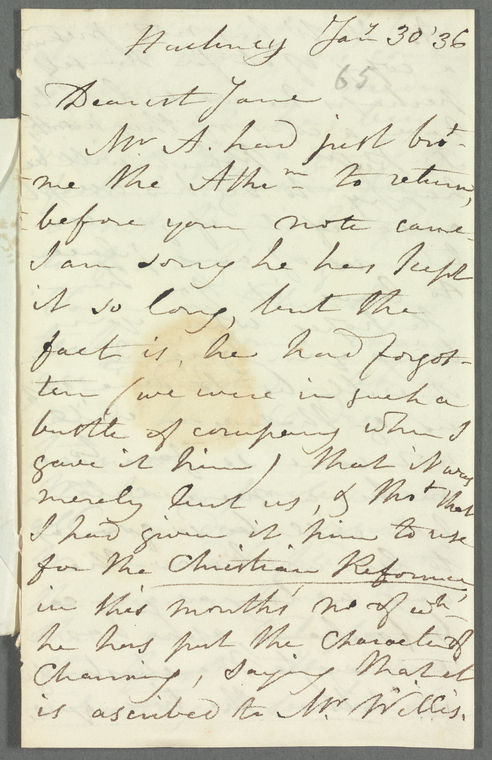 Hackney Jany 30 '36
65
Dearest Jane
Mr A. had just brot
me the Athem to return,
before your note came.
I am sorry he has kept
it so long, but the
fact is, he had forgot-
ten (we were in such a
bustle of company when I
gave it him) that it was
merely lent us, & thot that
I had given it him to use
for the Christian Reformer,
in this month's no of wh
he has put the Character of
Channing, saying that it
is ascribed to Mr Willis.